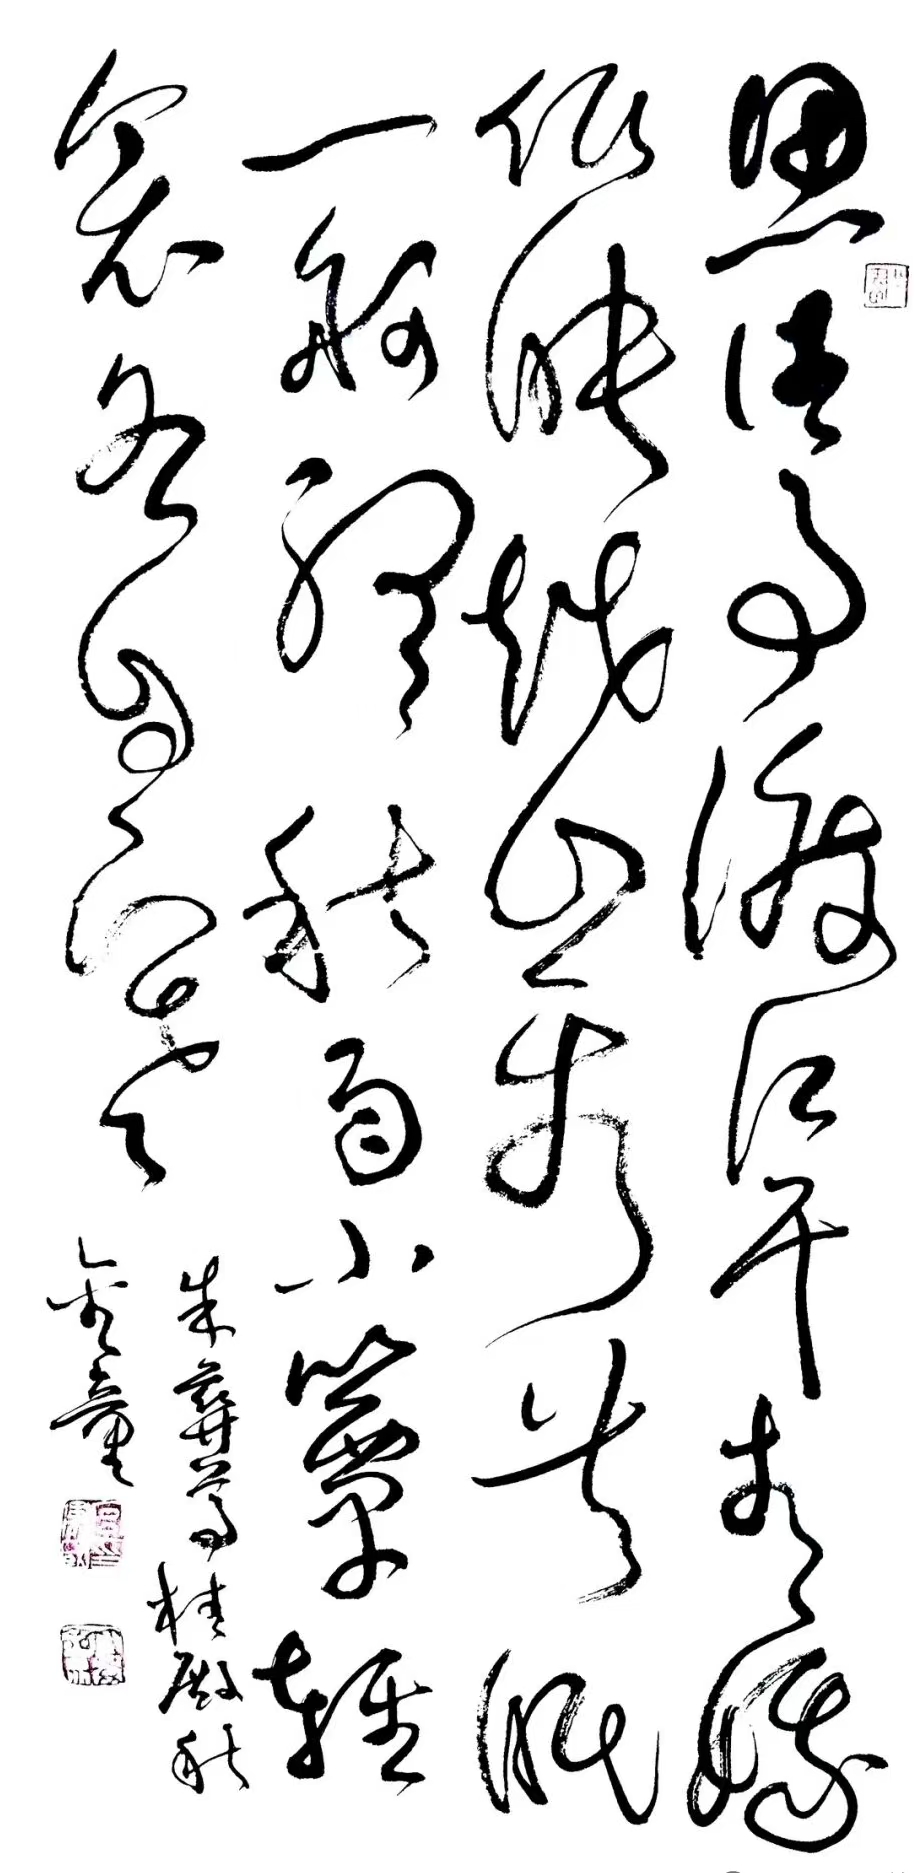 思往事渡江干青蛾
低映越山看共眠
一舸听秋雨小簟轻
衾各自寒
朱彝尊桂殿秋